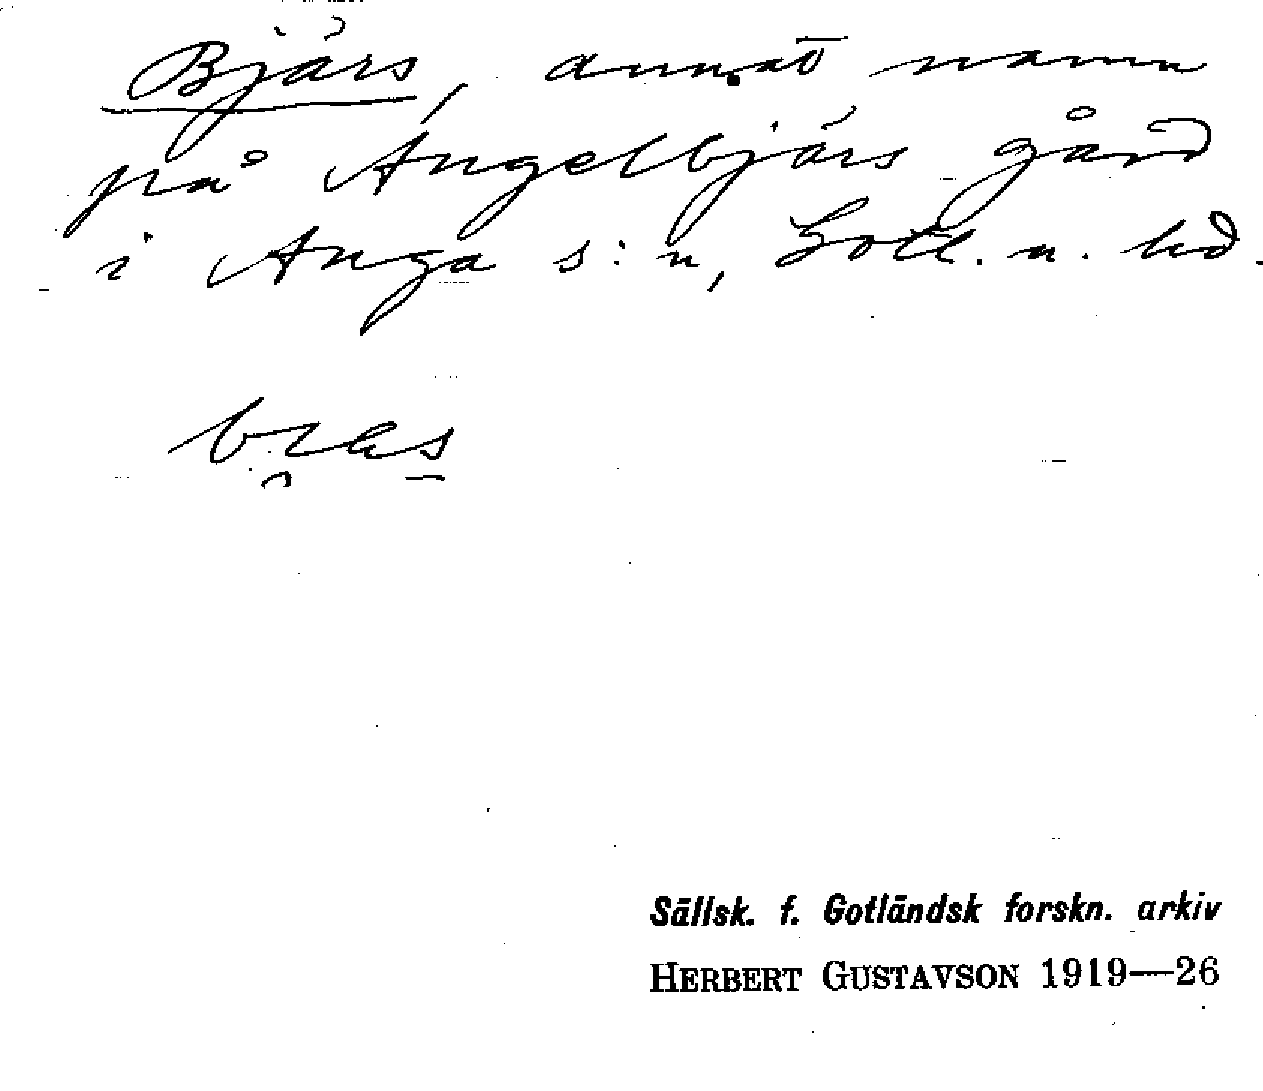 Bjärs, annat namn
på Angelbjärs gård
i Anga s:n, Gotl. n. hd.
Sällsk. f. Gotländsk forskn. arkiv
HERBERT GUSTAVSON 1919—26